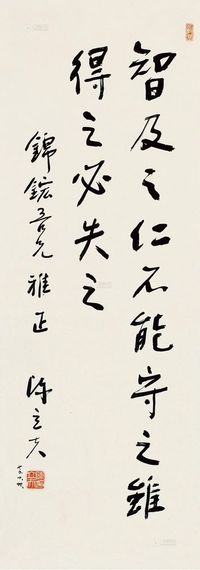 智及之仁不能守之雖
得之必失之
錦鋐吾兄雅正
陳立夫